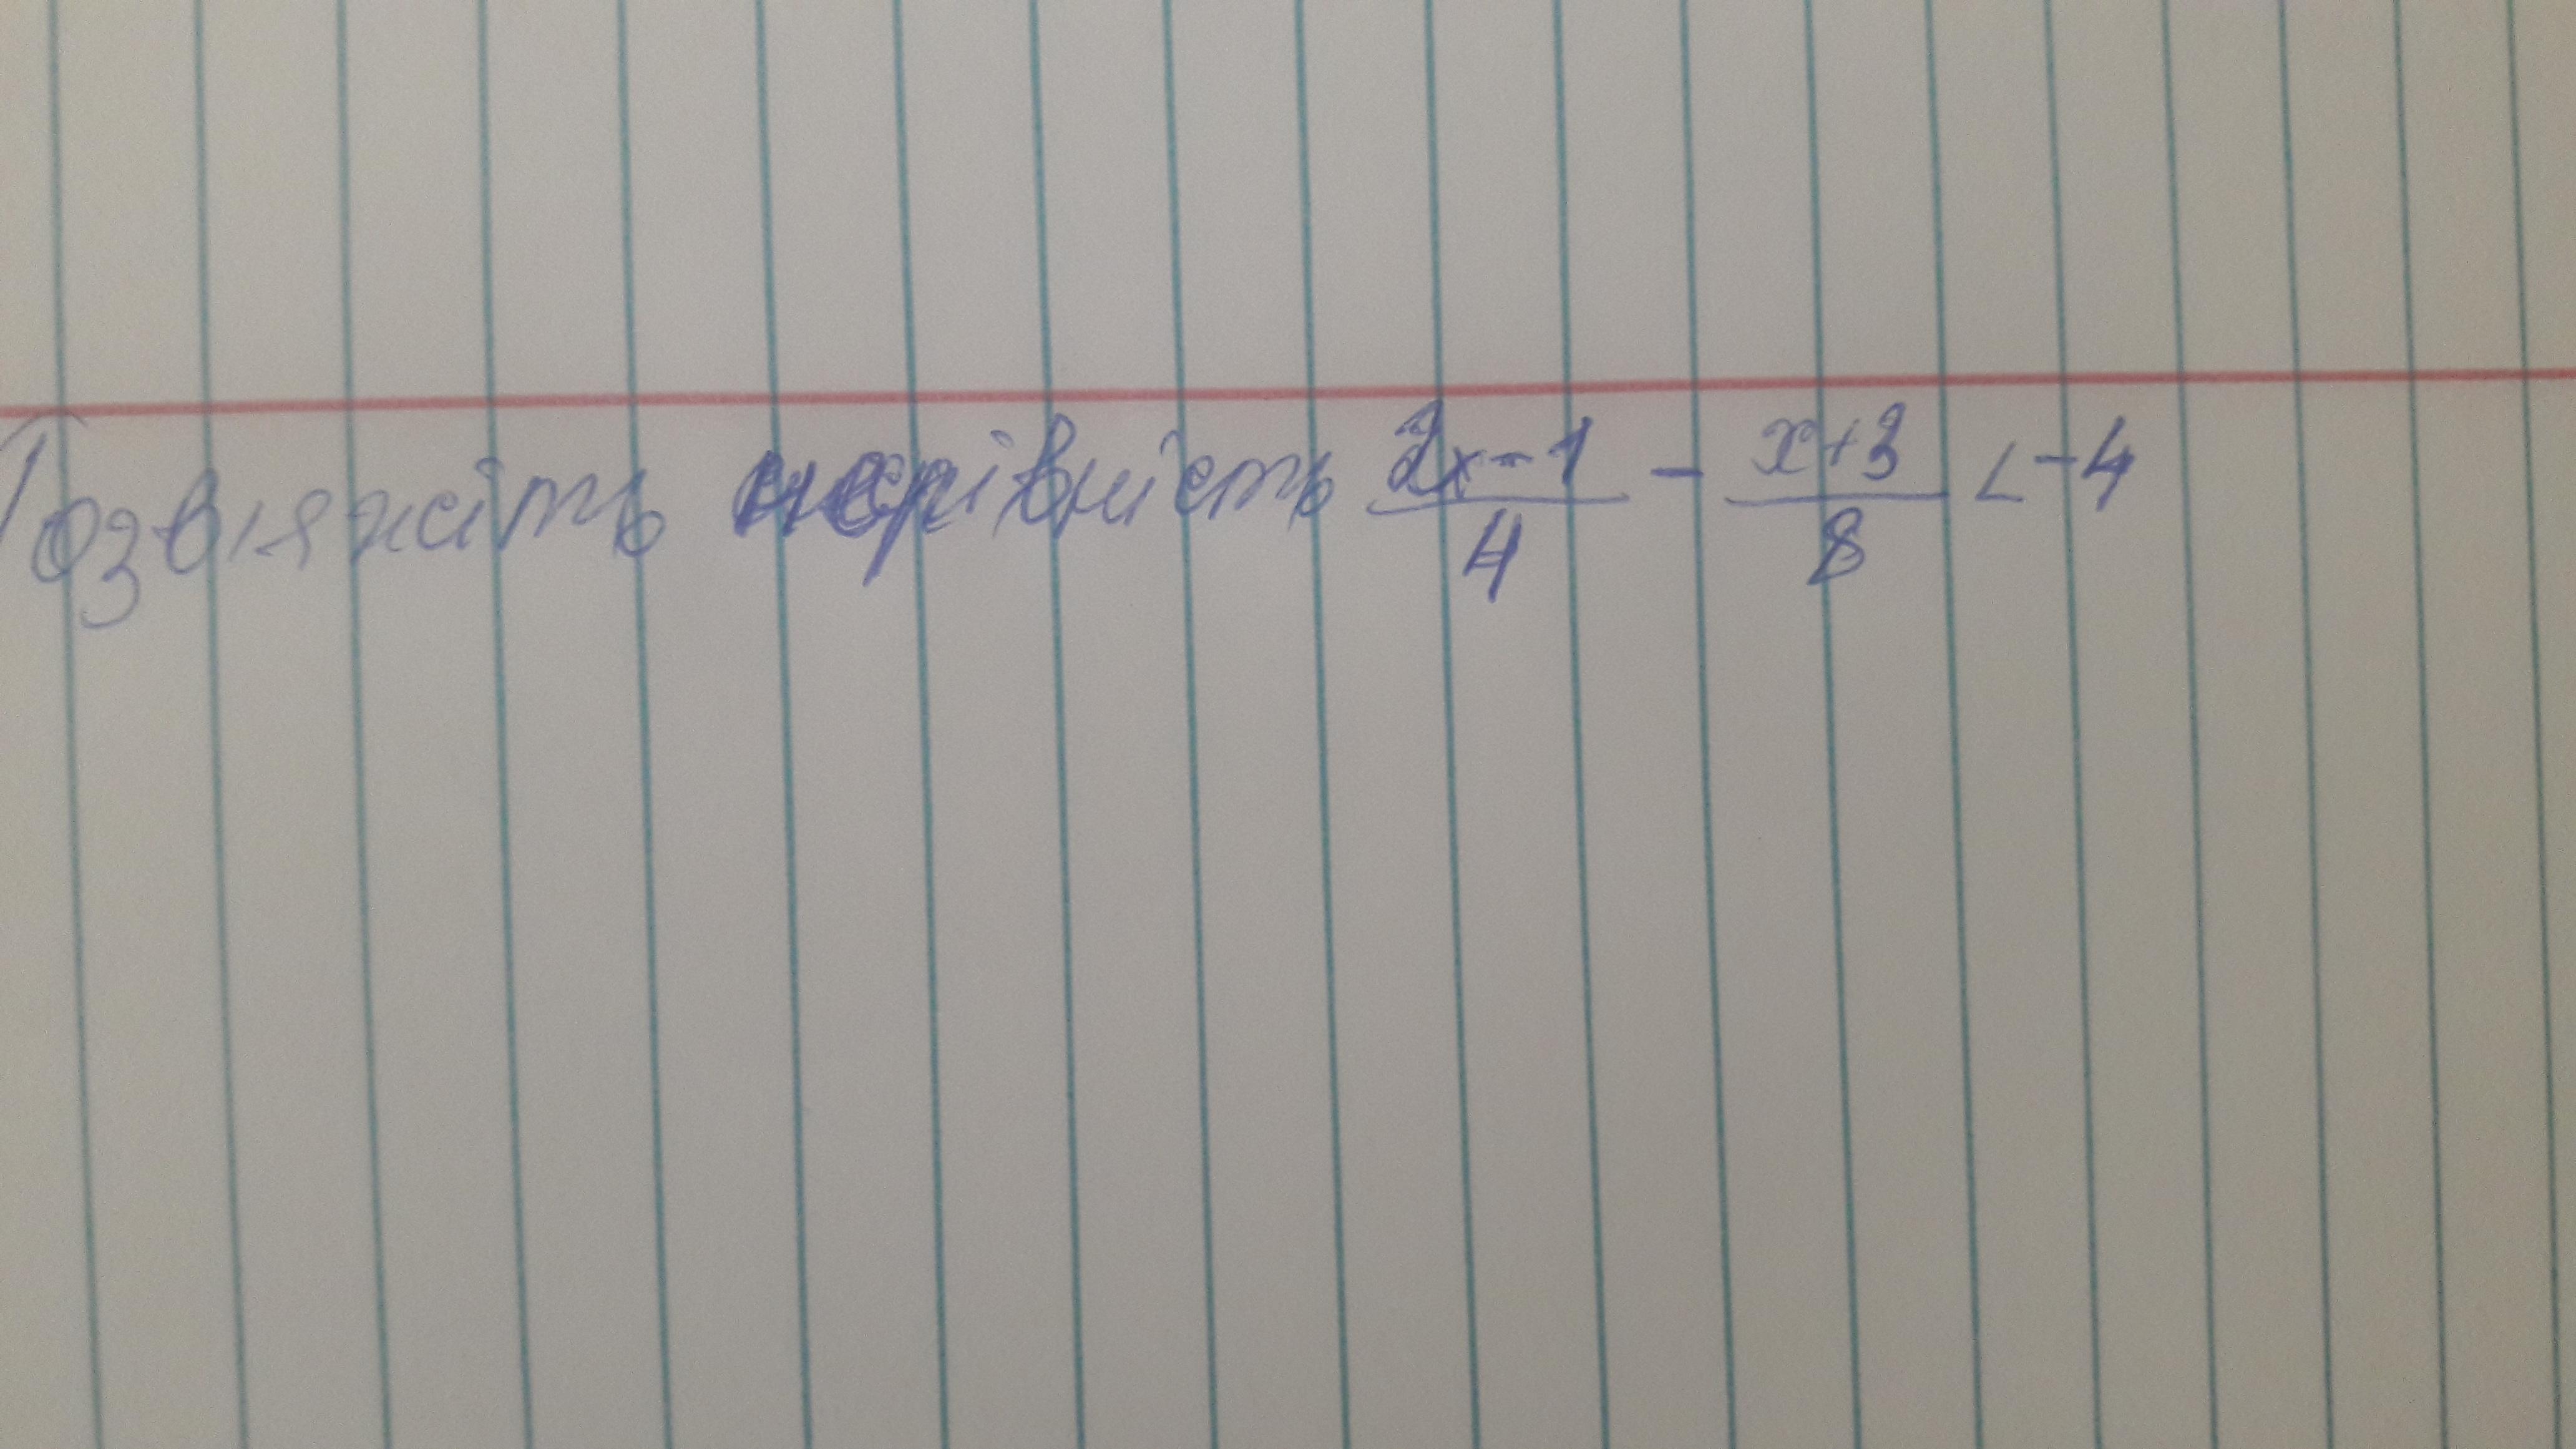 Розв'яжіть нерівність (2x-1)/4 - (x+3)/8 < -4